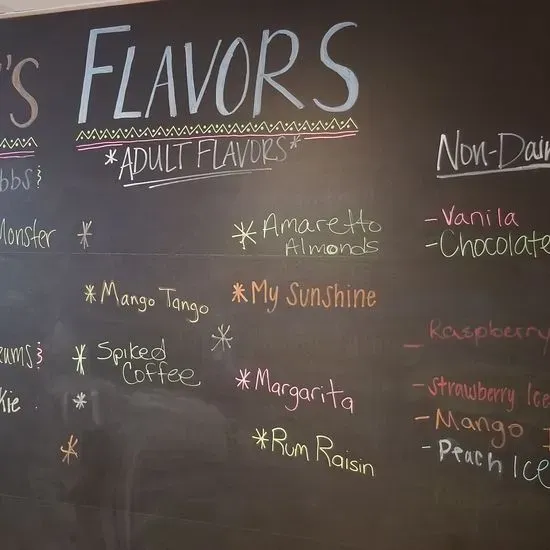 'S FLAVORS
*ADULT FLAVORS*
Non-Dair
bbs
Monster
* Amaretto
Almonds
- Vanila
- Chocolate
* Mango Tango
* My Sunshine
- Raspberry
eums
* Spiked
Coffee
* Margarita
- Strawberry Ice
kie
- Mango I
* Rum Raisin
- Peach Ice